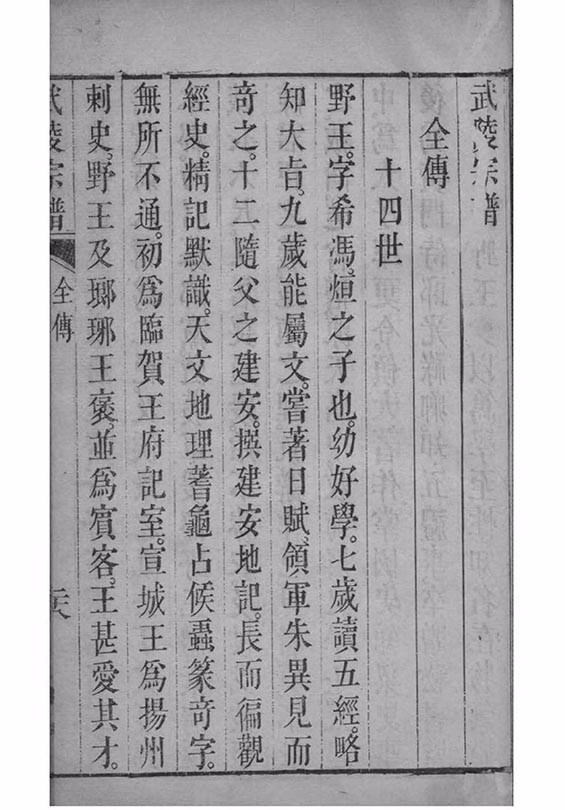 武陵宗譜
全傳
十四世
野王。字希馮。烜之子也。幼好學。七歲讀五經。略
知大㫖。九歲能屬文。嘗著日賦。領軍朱异見而
竒之。十二隨父之建安。撰建安地記。長而徧觀
經史。精記默識。天文地理蓍龜占候蟲篆竒字。
無所不通。初爲臨賀王府記室。宣城王爲揚州
刺史。野王及瑯琊王褒。並爲賓客。王甚愛其才。
武陵宗譜 全傳